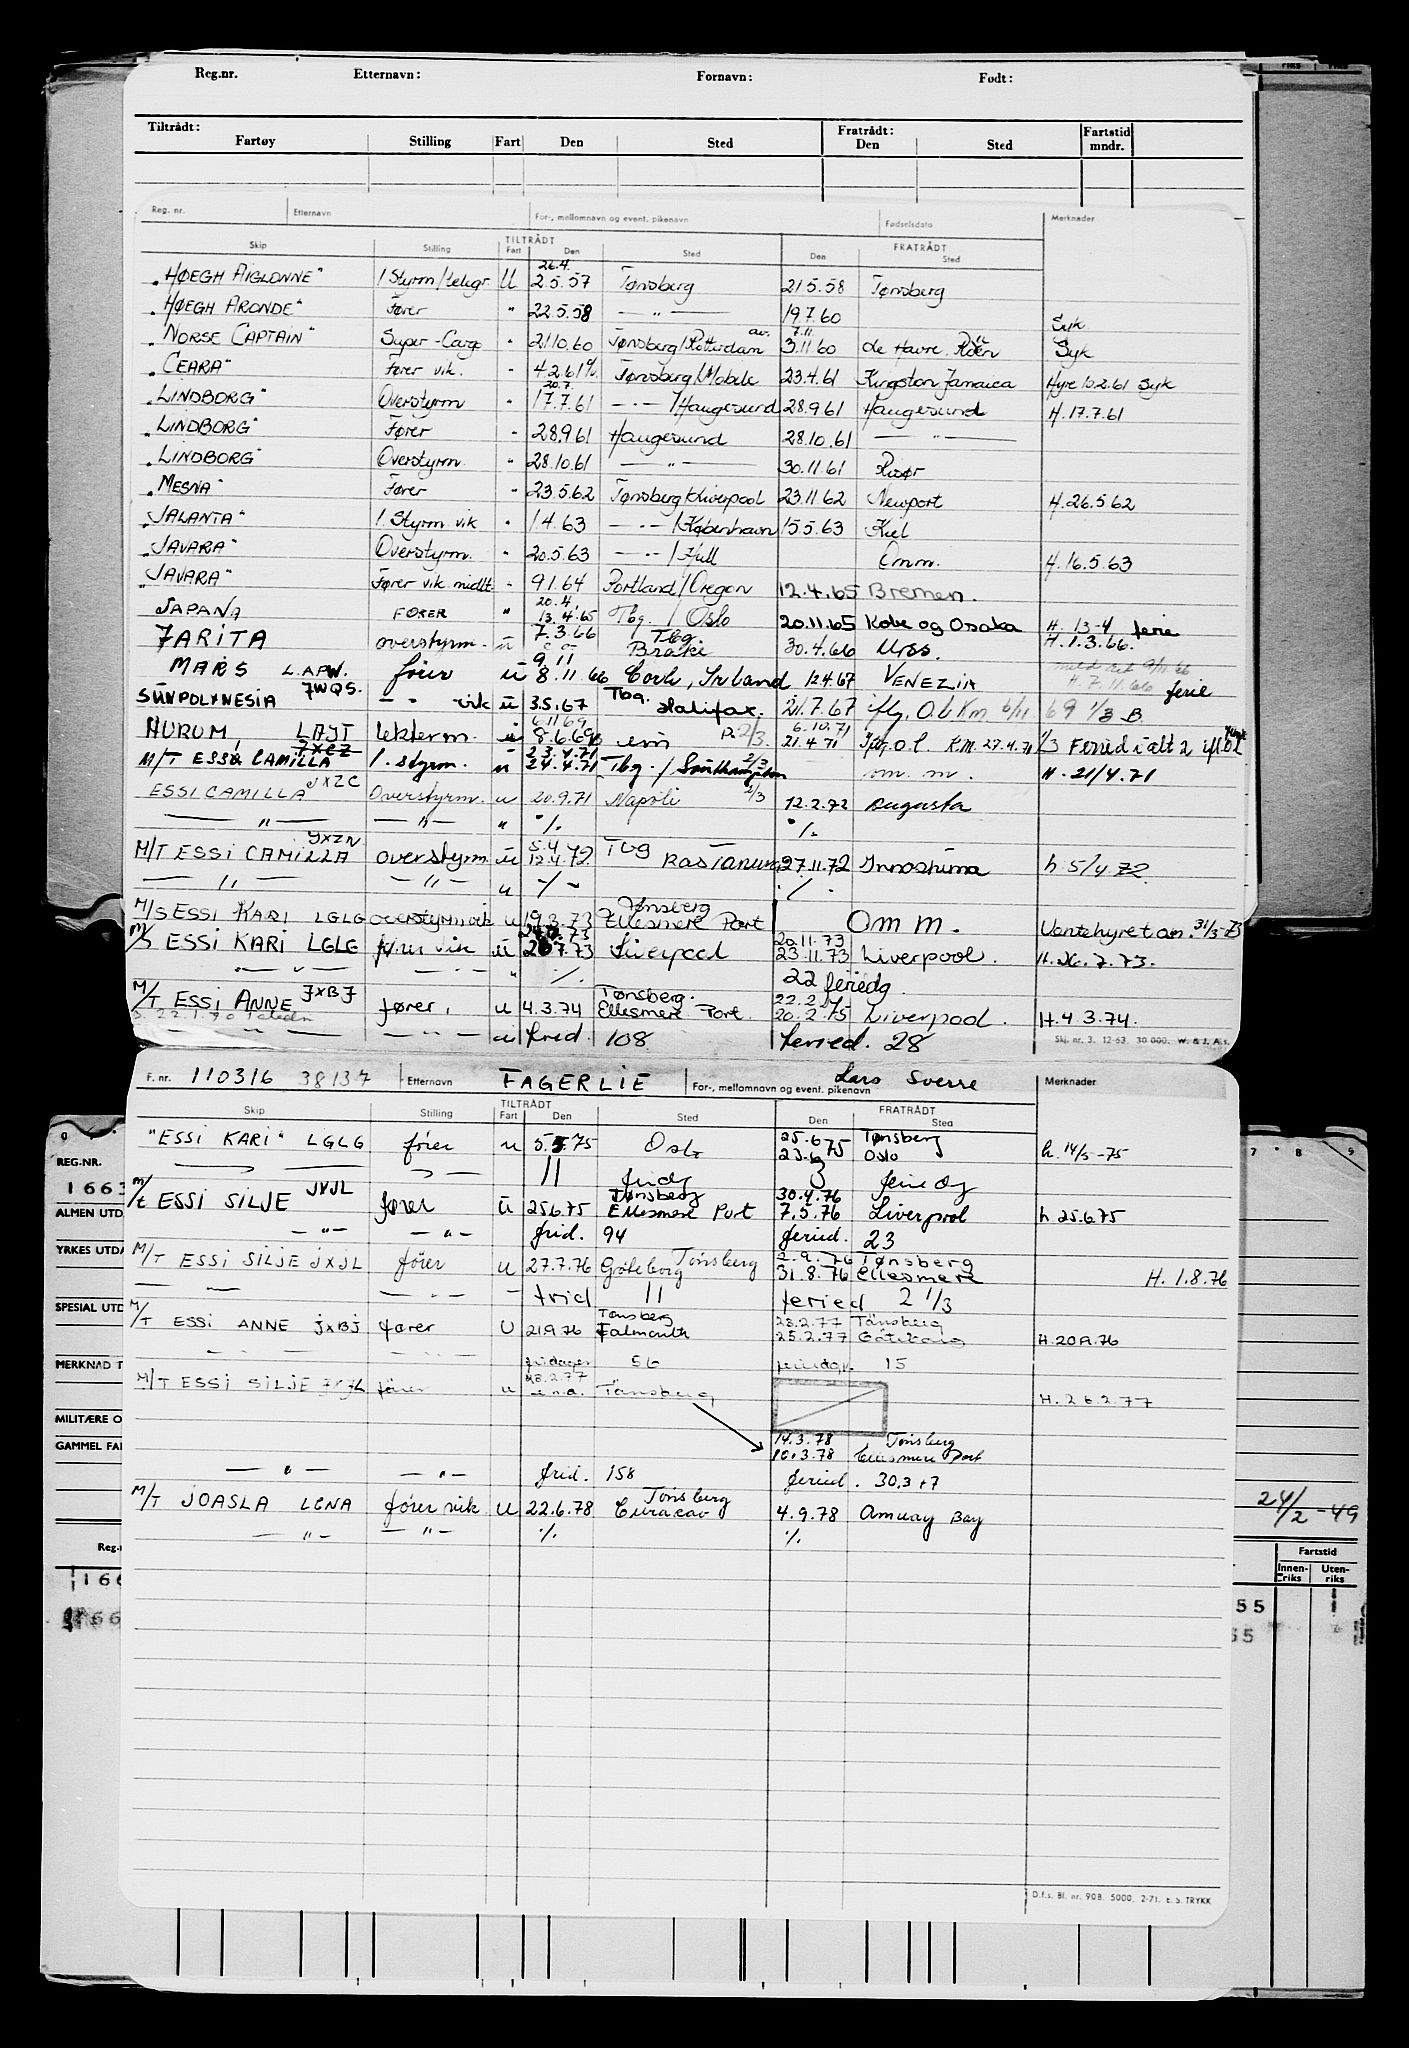 Reg.nr. Etternavn: Fornavn: Født:
Tiltrådt: Fratrådt: Fartstid
Fartøy Stilling Fart Den Sted Den Sted mndr.
Reg. nr. Etternavn For-, mellomnavn og event. pikenavn Fødselsdato Merknader
TILTRÅDT FRATRÅDT
Skip Stilling Fart Den Sted Den Sted
26.4.
"HØEGH AIGLONNE" 1 Styrm/telegr. U 2.5.57 Tønsberg 21.5.58 Tønsberg
"HØEGH ARONDE" Fører " 22.5.58 — " — 19.7.60 Syk
"NORSE CAPTAIN" Super-Cargo " 21.10.60 Tønsberg/Rotterdam av. 7.11 3.11.60 Le Havre Syk
"CEARA" Fører vik. " 4.2.61 Tønsberg/Mobile 23.4.61 Kingston Jamaica Hyre 10.2.61 Syk
20.7.
"LINDBORG" Overstyrm " 17.7.61 — " — /Haugesund 28.9.61 Haugesund H. 17.7.61
"LINDBORG" Fører " 28.9.61 Haugesund 28.10.61 — " —
"LINDBORG" Overstyrm. " 28.10.61 — " — 30.11.61 Risør
"MESNA" Fører " 23.5.62 Tønsberg/Liverpool 23.11.62 Newport H.26.5.62
"JALANTA" 1. Styrm vik " 1.4.63 — " — /København 15.5.63 Kiel
"JAVARA" Overstyrm. " 20.5.63 — " — /Hull Omm. H.16.5.63
"JAVARA" Fører vik. midlt. " 9.1.64 Portland/Oregon 12.4.65 Bremen.
20.4.
JAPANA FØRER " 13.4.65 Tbg. / Oslo 20.11.65 Kobe og Osaka H. 13-4 ferie
JARITA overstyrm. u 7.3.66 Tbg. Brake 30.4.66 Urss. H.1.3.66.
9 11
MARS LAPW. fører u 8.11.66 Cork, Irland 12.4.67 VENEZIA H. 7.11.66 ferie
SUNPOLYNESIA JWQS. — " — vik u 3.5.67 Tbg. Halifax. 21.7.67
6.11.69 6.10.71
HURUM, LAJT lekterm. u 8.6.69 21.4.71
23.4.71
M/T ESSI CAMILLA JXCZ 1. styrm. u 24.4.71 Tbg. / Southampton 2/3 om. m. H. 21/4.71
ESSI CAMILLA JXZC Overstyrm. u 20.9.71 Napoli 2/3 12.2.72 Augusta
— " — — " — " ./. ./.
5.4
M/T ESSI CAMILLA JXZN overstyrm. u 12.4.72 Tbg RASTANURA 27.11.72 Innoshima h. 5/4 72
— " — — " — u ./. ./.
Tønsberg
M/S ESSI KARI LGLG overstyrm vik u 19.3.73 Ellesmere Port Omm. Ventehyre
20.11.73
M/S ESSI KARI LGLG fører vik u 26.7.73 Liverpool 23.11.73 Liverpool. H.26.7.73.
— " — — " — " ./. 22 feriedg.
Tønsberg. 22.2.75
M/T ESSI ANNE JXBJ fører. u 4.3.74 Ellesmere Port. 20.2.75 Liverpool. H.4.3.74.
— " — — " — u frid. 108 feried. 28
Skj. nr. 3. 12-63. 30 000. W. & J. A/s.
F. nr. 110316 38137 Etternavn FAGERLIE For-, mellomnavn og event. pikenavn Lars Sverre Merknader
TILTRÅDT FRATRÅDT
Skip Stilling Fart Den Sted Den Sted
25.6.75 Tønsberg
"ESSI KARI" LGLG fører u 5.5.75 Oslo 23.6 Oslo h. 14/5-75
11 fridg 3 ferie dg
Tønsberg 30.4.76
M/t ESSI SILJE JXJL fører u 25.6.75 Ellesmere Port 7.5.76 Liverpool h 25.6.75
— " — — " — frid. 94 feried. 23
Tønsberg 2.9.76 Tønsberg
M/T ESSI SILJE JXJL fører u 27.7.76 Göteborg 31.8.76 Ellesmere H. 1.8.76
— — " — frid 11 feried 2 1/3
Tønsberg 28.2.77 Tønsberg
M/T ESSI ANNE JXBJ fører U 21.9.76 Falmouth 25.2.77 Göteborg H.20.9.76
fridager 56 feriedgr. 15
M/T ESSI SILJE JXJL fører u Tønsberg H. 26.2.77
14.3.78 Tønsberg
10.3.78 Ellesmere Port
— " — — " — frid. 158 feried. 30.3 + 7
Tønsberg
M/T JOASLA LCNA fører vik u 22.6.78 Curacao 4.9.78 Amuay Bay
— " — — " — ./. ./.
D.f.s. Bl. nr. 90B. 5000. 2-71. E. S. TRYKK
REG.NR.
1663
ALMEN UTD
YRKES UTDA
SPESIAL UTD
MERKNAD T
MILITÆRE O
GAMMEL FAR
24/2-49
Reg.n
Fartstid
Innen-riks Uten-riks
166
166
55
55
7 8 9